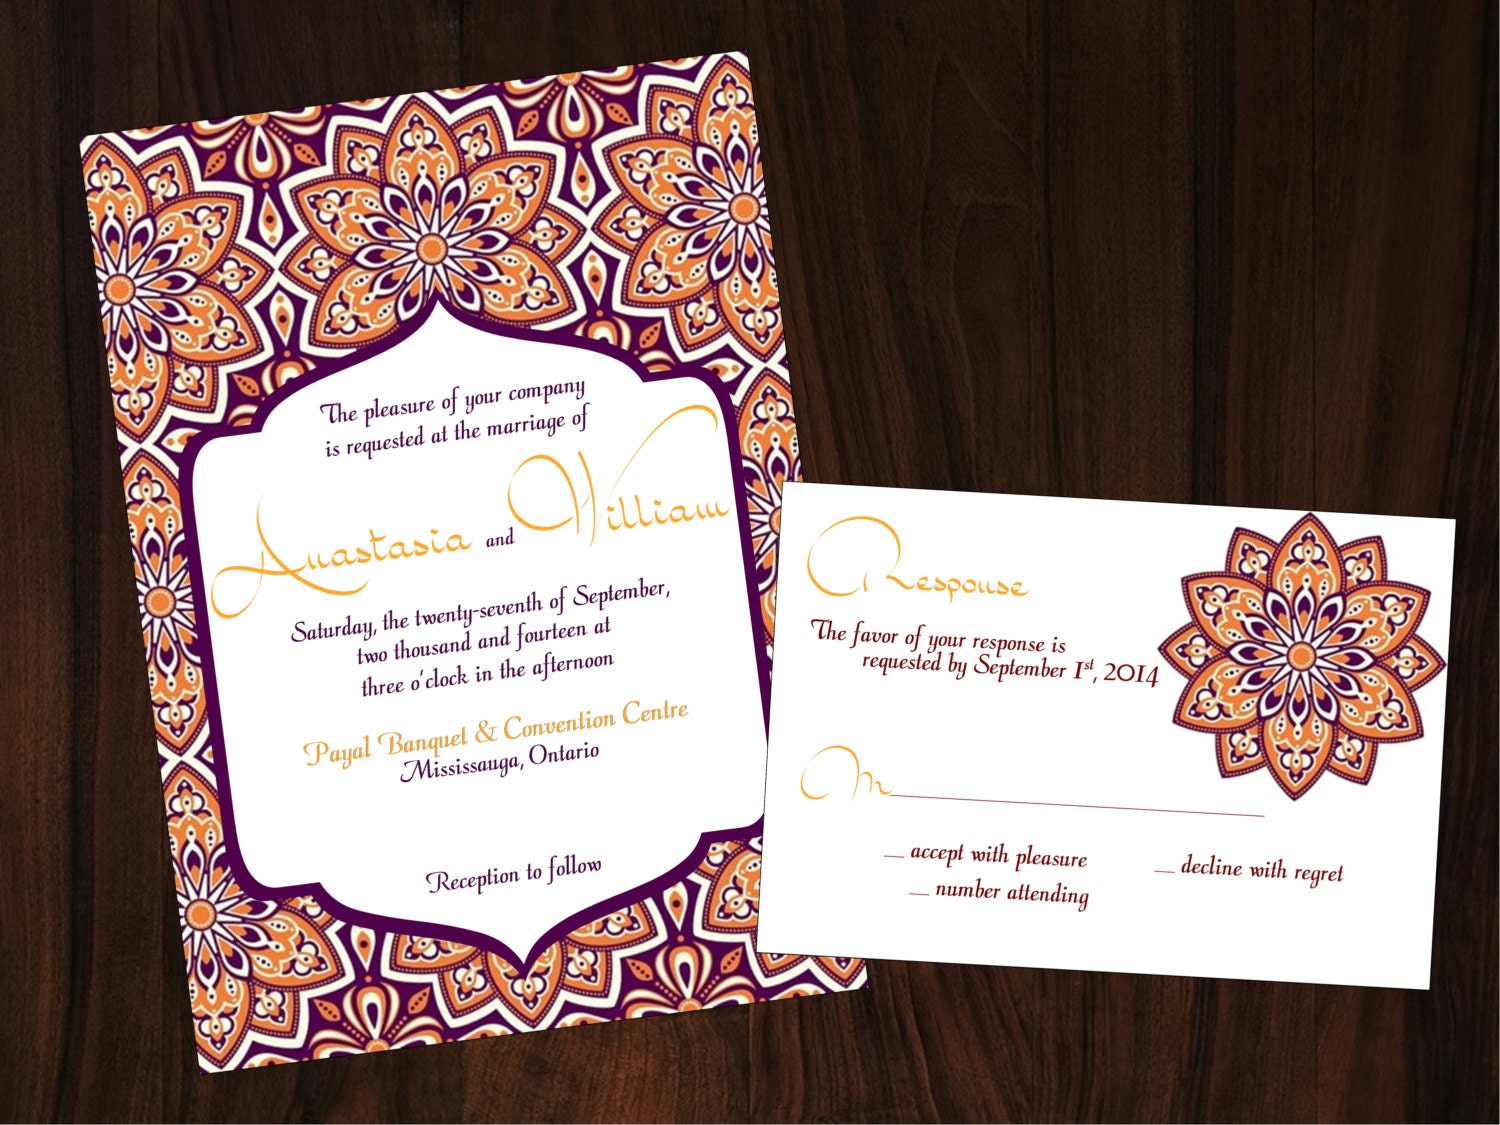 The pleasure of your company
is requested at the marriage of
Anastasia and William
Saturday, the twenty-seventh of September,
two thousand and fourteen at
three o'clock in the afternoon
Payal Banquet & Convention Centre
Mississauga, Ontario
Reception to follow
Response
The favor of your response is
requested by September 1st, 2014
M
accept with pleasure
decline with regret
number attending